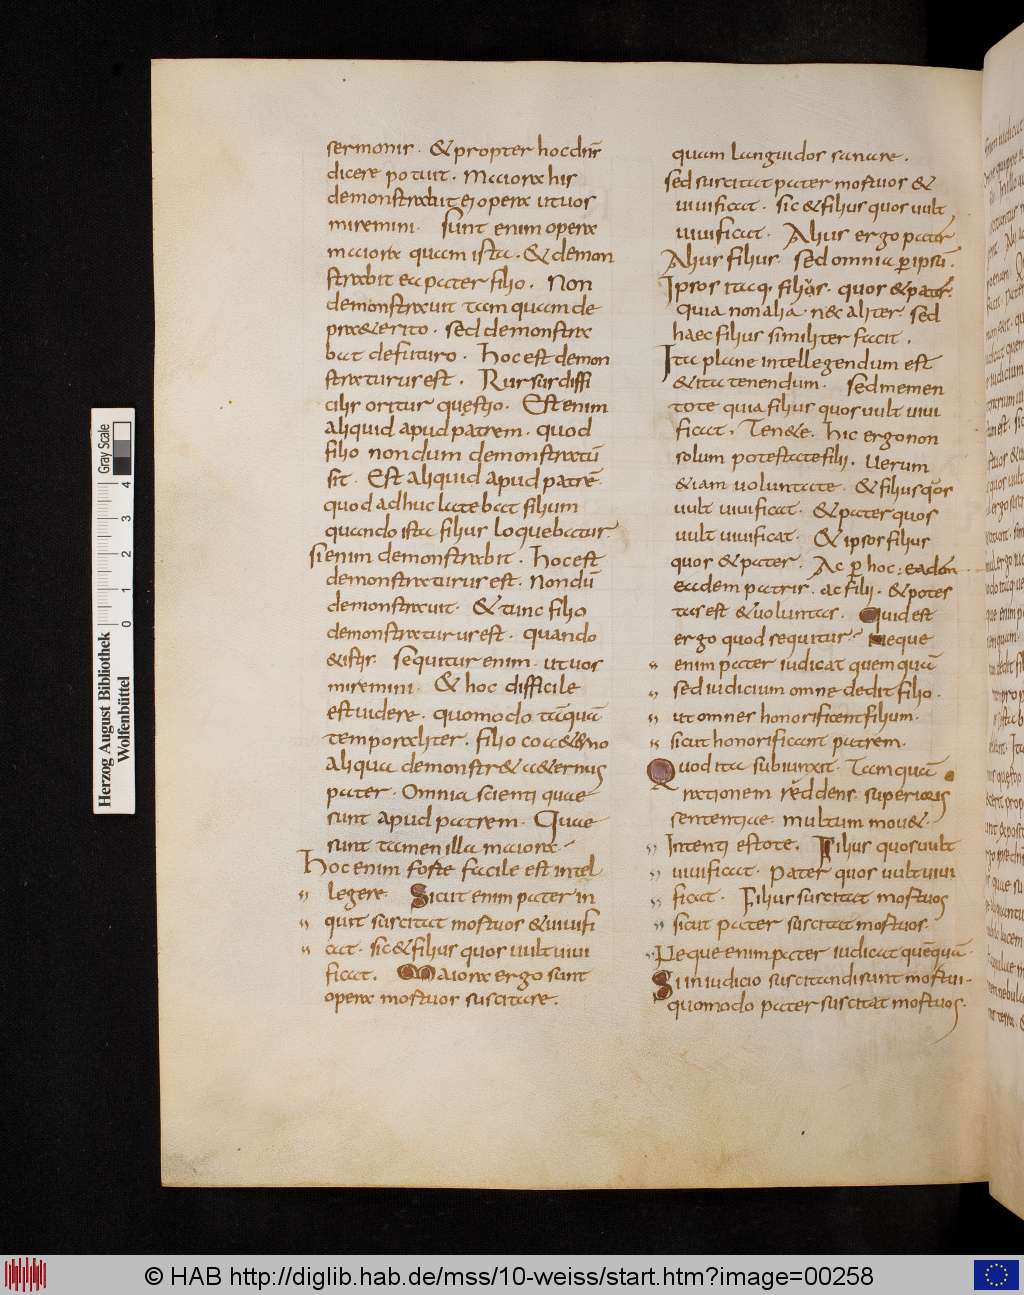 sermonis · & propter hoc dn̄s
dicere potuit · Maiora his
demonstrabit ei opera ut uos
miremini · Sunt enim opera
maiora quam ista · & demon
strabit ea pater filio . Non
demonstrauit tam quam de
praeterito · sed demonstra
bat de futuro . Hoc est demon
straturus est . Rursus diffi
cilis oritur questio · Est enim
aliquid apud patrem · quod
filio nondum demonstratū
sit · Est aliquid apud patrē
quod adhuc latebat filium
quando ista filius loquebatur
si enim demonstrabit . Hoc est
demonstraturus est . nondū
demonstrauit · & tunc filio
demonstraturus est · quando
& istis · sequitur enim · ut uos
miremini · & hoc difficile
est uidere . quomodo tāquā
temporaliter . filio coaeterno
aliqua demonstret aeternus
pater · Omnia scienti quae
sunt apud patrem · Quae
sunt tamen illa maiora
Hoc enim forte facile est intel
legere · Sicut enim pater in
quit suscitat mortuos & uiuifi
cat · sic & filius quos uult uiui
ficat . Maiora ergo sunt
opera mortuos suscitare .
quam languidos sanare .
sed suscitat pater mortuos &
uiuificat · sic & filius quos uult
uiuificat · Alius ergo pater
Alius filius · sed omnia p̄ ipsū .
Ipsos itaq· filius · quos & pater
quia non alia · nec aliter sed
haec filius similiter facit .
Ita plane intellegendum est
& ita tenendum · sed memen
tote quia filius quos uult uiui
ficat . Tenete · hic ergo non
solum potestate filii . uerum
& iam uoluntate · & filius quos
uult uiuificat · & pater quos
uult uiuificat · & ipsos filius
quos & pater . Ac p̄ hoc : eadem
eadem patris . ac filii · & potes
tas est & uoluntas . Quid est
ergo quod sequitur Neque
enim pater iudicat quemquā
sed iudicium omne dedit filio .
ut omnes honorificent filium ·
sicut honorificant patrem ·
Quod ita subiunxit · Tamquā
rationem reddens superioris
sententiae · multum mouet ·
Intenti estote . Filius quos uult
uiuificat · Pater quos uult uiui
ficat · Filius suscitat mortuos
sicut pater suscitat mortuos ·
Neque enim pater iudicat quēquā
Si in iudicio suscitandi sunt mortui ·
quomodo pater suscitat mortuos ·
Herzog August Bibliothek
Wolfenbüttel
0 1 2 3 4
Gray Scale
© HAB http://diglib.hab.de/mss/10-weiss/start.htm?image=00258